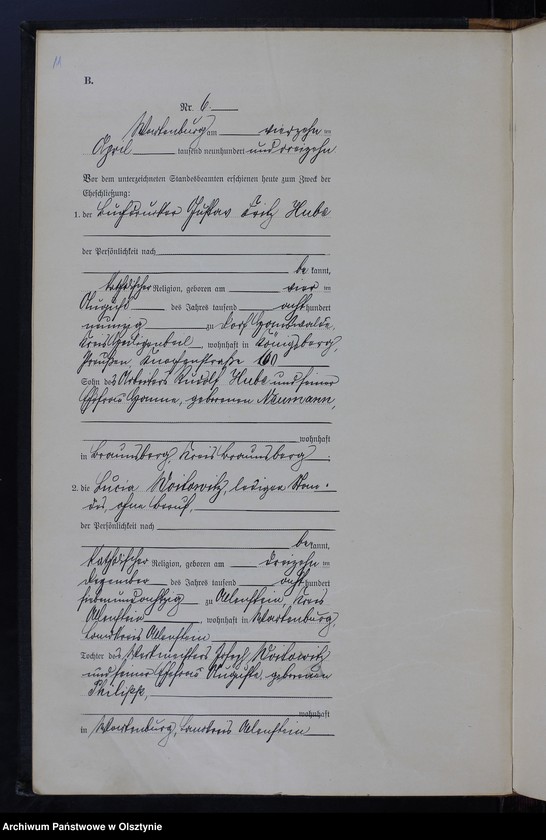 11
B.
Nr. 6.
Wartenburg am vierzehn ten
April tausend neunhundert und dreizehn
Vor dem unterzeichneten Standesbeamten erschienen heute zum Zweck der
Eheschließung:
1. der Buchdrucker Gustav Fritz Hube
der Persönlichkeit nach
be kannt,
katholischer Religion, geboren am vier ten
August des Jahres tausend acht hundert
neunzig zu Dorf
Kreis , wohnhaft in Königsberg,
Preußen, 160
Sohn des Arbeiters Rudolf Hube und seiner
Ehefrau , geborenen Neumann,
wohnhaft
in Braunsberg, Kreis Braunsberg.
2. die Lucia Woitowitz, ledigen Stan-
des, ohne Beruf,
der Persönlichkeit nach
be kannt,
katholischer Religion, geboren am dreizehn ten
Dezember des Jahres tausend acht hundert
siebenundachtzig zu Allenstein, Kreis
Allenstein, wohnhaft in Wartenburg,
Landkreis Allenstein
Tochter des Werkmeisters Joseph Woitowitz
und seiner Ehefrau Auguste, geborenen
Philipp,
wohnhaft
in Wartenburg, Landkreis Allenstein
Archiwum Państwowe w Olsztynie